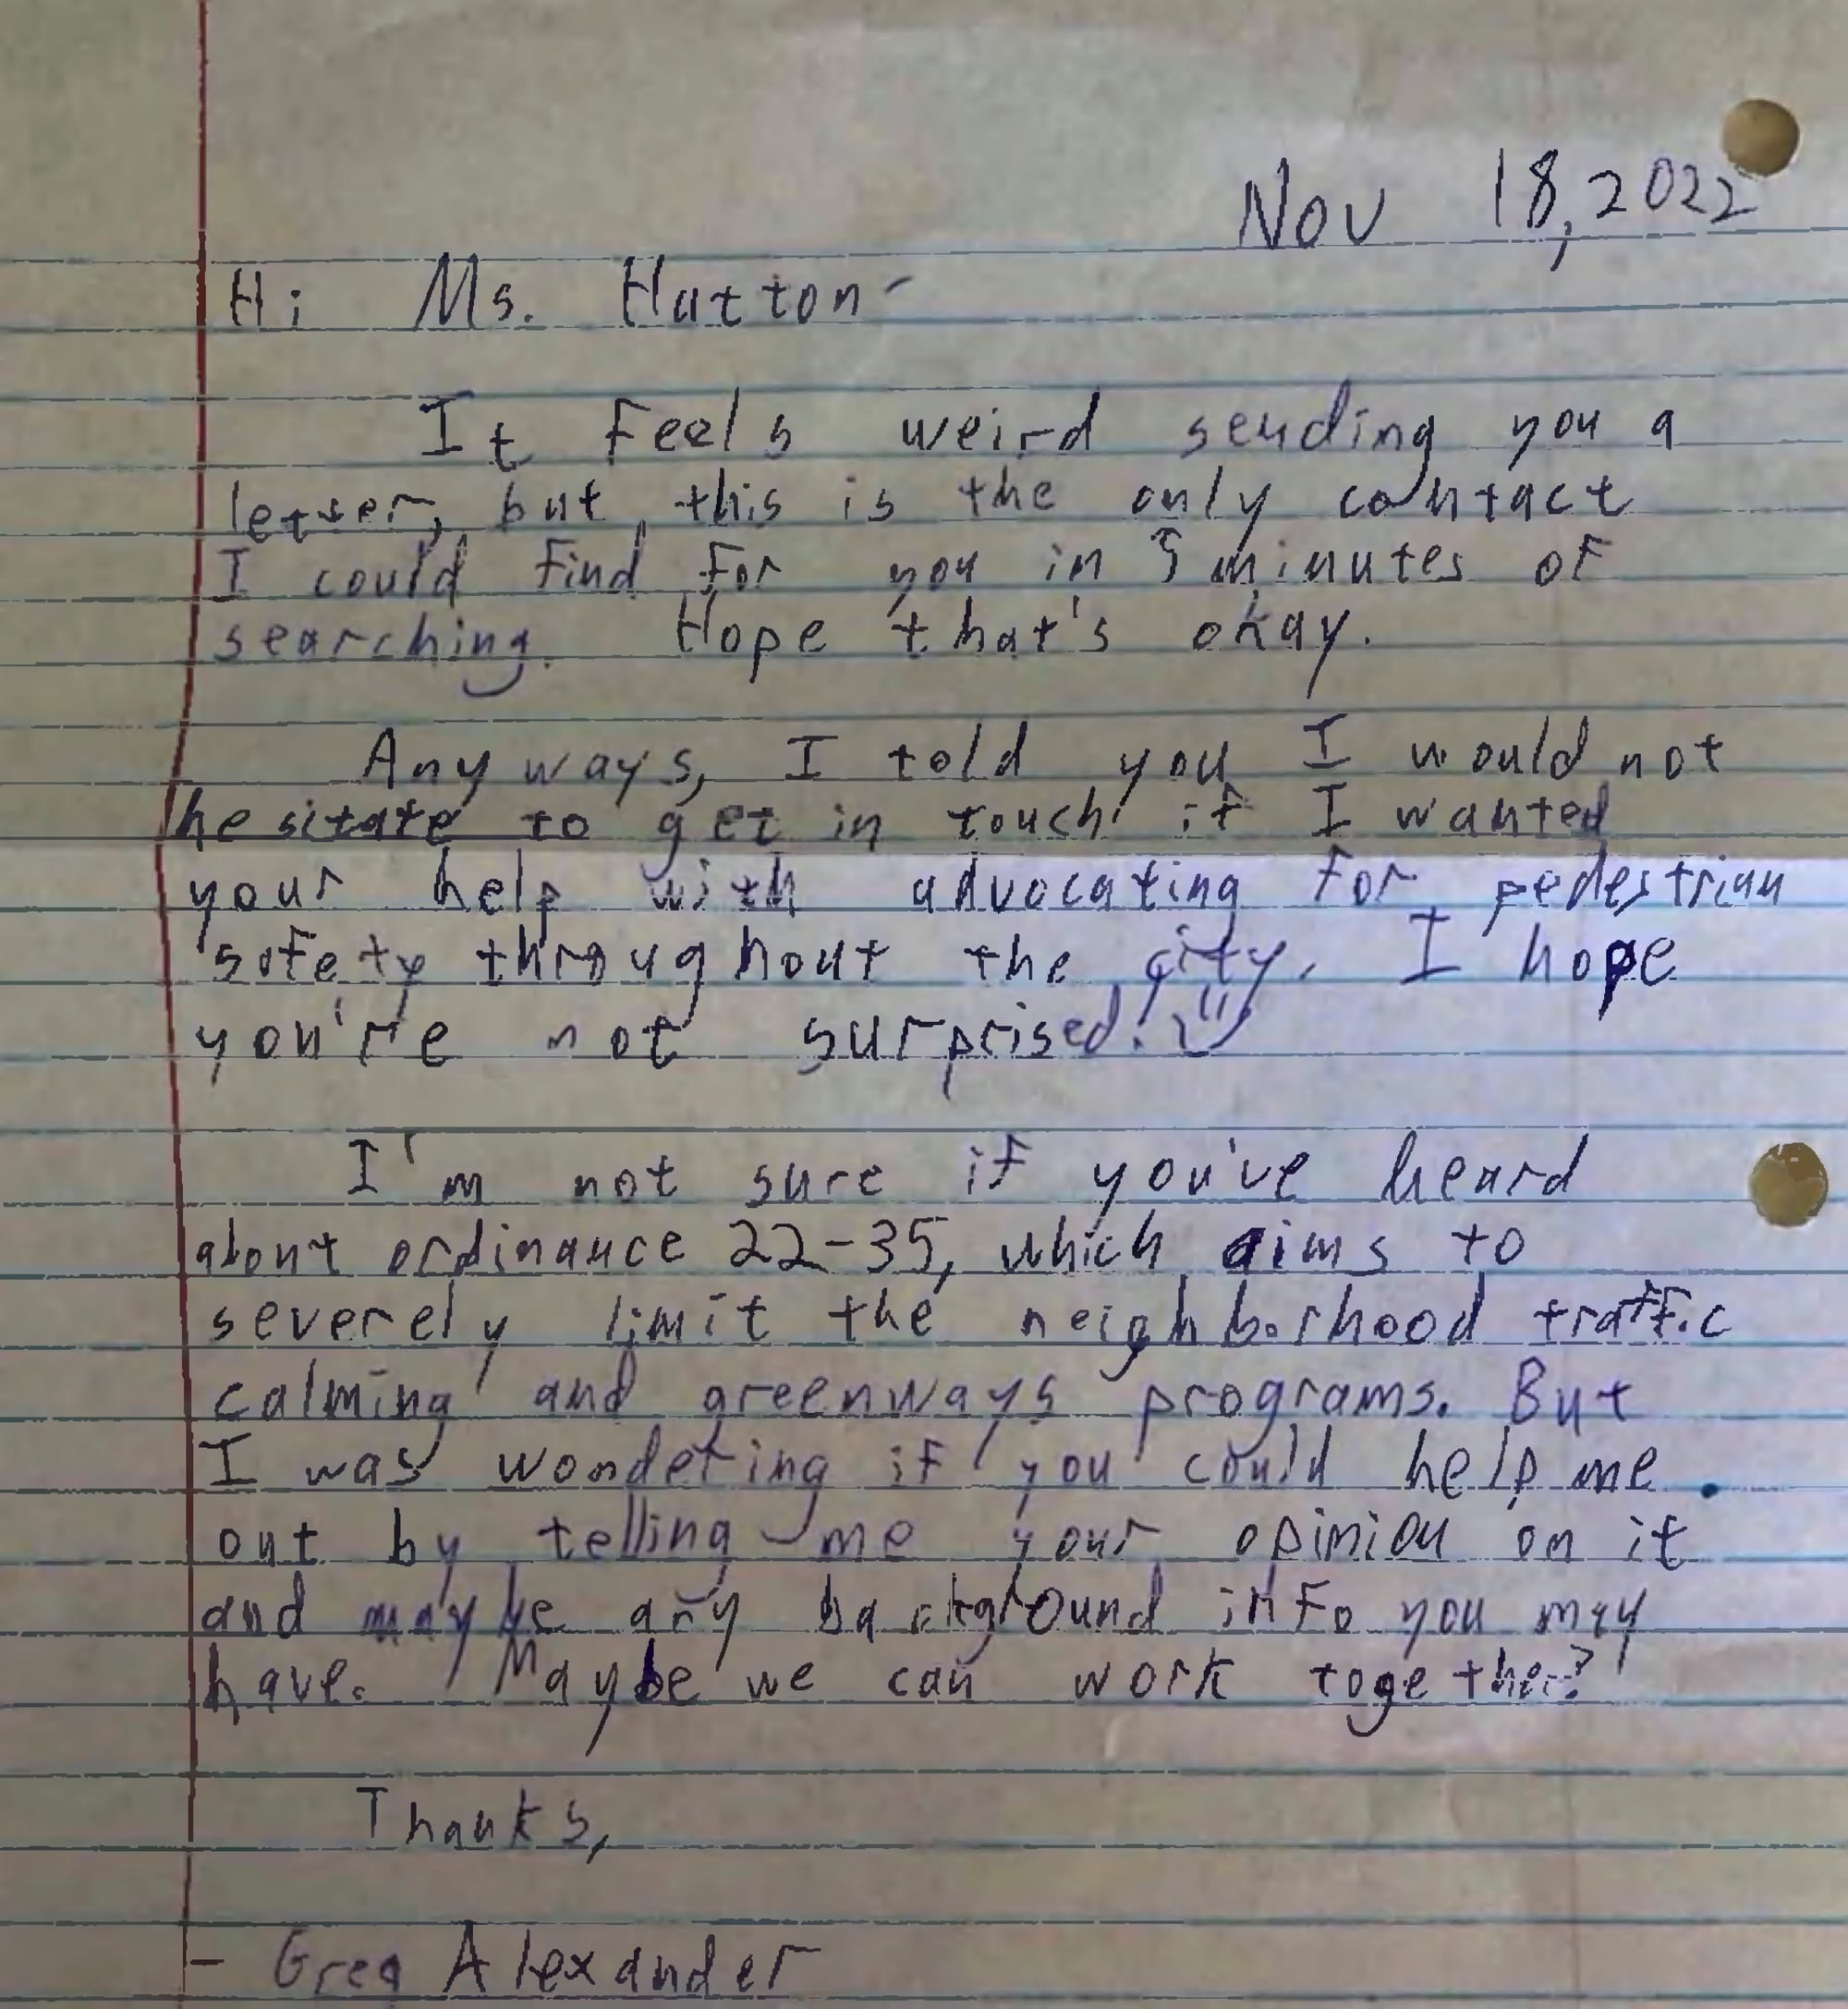 Nov 18, 2022
Hi Ms. Hatton-
It feels weird sending you a
letter, but this is the only contact
I could find for you in 5 minutes of
searching. Hope that's okay.
Any ways, I told you I would not
hesitate to get in touch if I wanted
your help with advocating for pedestrian
safety throughout the city. I hope
you're not surprised!
I'm not sure if you've heard
about ordinance 22-35, which aims to
severely limit the neighborhood traffic
calming and greenways programs. But
I was wondering if you could help me
out by telling me your opinion on it
and maybe any background info you may
have. Maybe we can work together?
Thanks,
- Greg Alexander